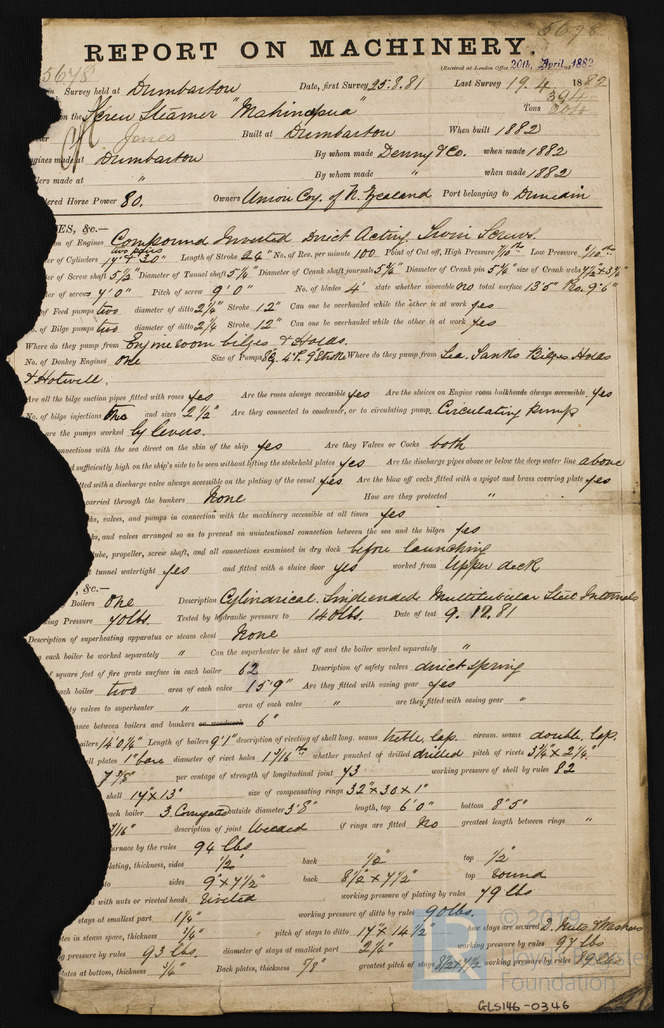 5678
REPORT ON MACHINERY.
5678
(Received at London Office 20th April 1882
in Survey held at Dumbarton Date, first Survey 25.8.81 Last Survey 19.4 1882
on the Screw Steamer "Mahinapua" Tons 394 204
Jones Built at Dumbarton When built 1882
Engines made at Dumbarton By whom made Denny & Co. when made 1882
made at " By whom made " when made 1882
Horse Power 80. Owners Union Coy. of N. Zealand Port belonging to Dunedin
ES, &c.—
of Engines Compound Inverted Direct Acting Twin Screws.
two pairs
of Cylinders 17" & 30" Length of Stroke 24" No. of Rev. per minute 100 Point of Cut off, High Pressure 7/10th Low Pressure 6/10th
of Screw shaft 5 1/2" Diameter of Tunnel shaft 5 1/8" Diameter of Crank shaft journals 5 5/8" Diameter of Crank pin 5 5/8" size of Crank webs
of screw 7'0" Pitch of screw 9'0" No. of blades 4 state whether moveable no total surface 13'5"
of Feed pumps two diameter of ditto 2 1/4" Stroke 12" Can one be overhauled while the other is at work yes
No. of Bilge pumps two diameter of ditto 2 1/4" Stroke 12" Can one be overhauled while the other is at work yes
Where do they pump from Engine room bilges & Holds.
No. of Donkey Engines One Size of Pumps Where do they pump from Sea Tanks Bilges Holds
& Hotwell.
Are all the bilge suction pipes fitted with roses yes Are the roses always accessible yes Are the sluices on Engine room bulkheads always accessible yes
No. of bilge injections One and sizes 2 1/2" Are they connected to condenser, or to circulating pump Circulating Pump
are the pumps worked by levers.
connections with the sea direct on the skin of the ship yes Are they Valves or Cocks both
sufficiently high on the ship's side to be seen without lifting the stokehold plates yes Are the discharge pipes above or below the deep water line above
fitted with a discharge valve always accessible on the plating of the vessel yes Are the blow off cocks fitted with a spigot and brass covering plate yes
carried through the bunkers None How are they protected "
cocks, valves, and pumps in connection with the machinery accessible at all times yes
cocks, and valves arranged so as to prevent an unintentional connection between the sea and the bilges yes
tube, propeller, screw shaft, and all connections examined in dry dock before launching
tunnel watertight yes and fitted with a sluice door yes worked from Upper deck
, &c.—
Boilers One Description Cylindrical Single ended Multitubular Steel Internals
Pressure 70lbs. Tested by hydraulic pressure to 140lbs. Date of test 9.12.81
Description of superheating apparatus or steam chest None
each boiler be worked separately " Can the superheater be shut off and the boiler worked separately "
of square feet of fire grate surface in each boiler 62 Description of safety valves direct spring
each boiler two area of each valve 15.9" Are they fitted with easing gear yes
valves to superheater " area of each valve " are they fitted with easing gear "
between boilers and bunkers or woodwork 6"
boilers 14'0 1/8" Length of boilers 9'1" description of riveting of shell long. seams treble lap. circum. seams double lap.
shell plates 1" bare diameter of rivet holes 1 3/16th whether punched or drilled drilled pitch of rivets
7 3/8" per centage of strength of longitudinal joint 73 working pressure of shell by rules 82
shell 17"x13" size of compensating rings 32"x30x1"
each boiler 3. Corrugated outside diameter 3'8" length, top 6'0" bottom 8'5"
7/16" description of joint Welded if rings are fitted No greatest length between rings "
furnace by the rules 94 lbs
plating, thickness, sides 1/2" back 1/2" top 1/2"
sides 9"x7 1/2" back 8 1/2"x7 1/2" top round
with nuts or riveted heads riveted working pressure of plating by rules 79 lbs
stays at smallest part 1 1/4" working pressure of ditto by rules 90lbs.
plates in steam space, thickness 3/4" pitch of stays to ditto 17"x14 1/2" how stays are secured D. Nuts & Washers
pressure by rules 93 lbs. diameter of stays at smallest part working pressure by rules 97 lbs
plates at bottom, thickness 3/4 Back plates, thickness 7/8" greatest pitch of stays 8 1/2x7 1/2 working pressure by rules
© 2019
Foundation
GLS146-0346